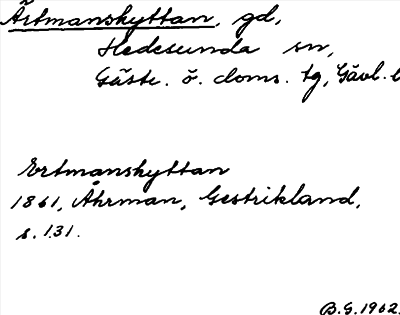 Ärtmanshyttan, gd,
Hedesunda sn,
Gäste. ö. doms. tg, Gävl. l
Ertmanshyttan
1861, Åhrman, Gestrikland,
s. 131.
B.G. 1962.